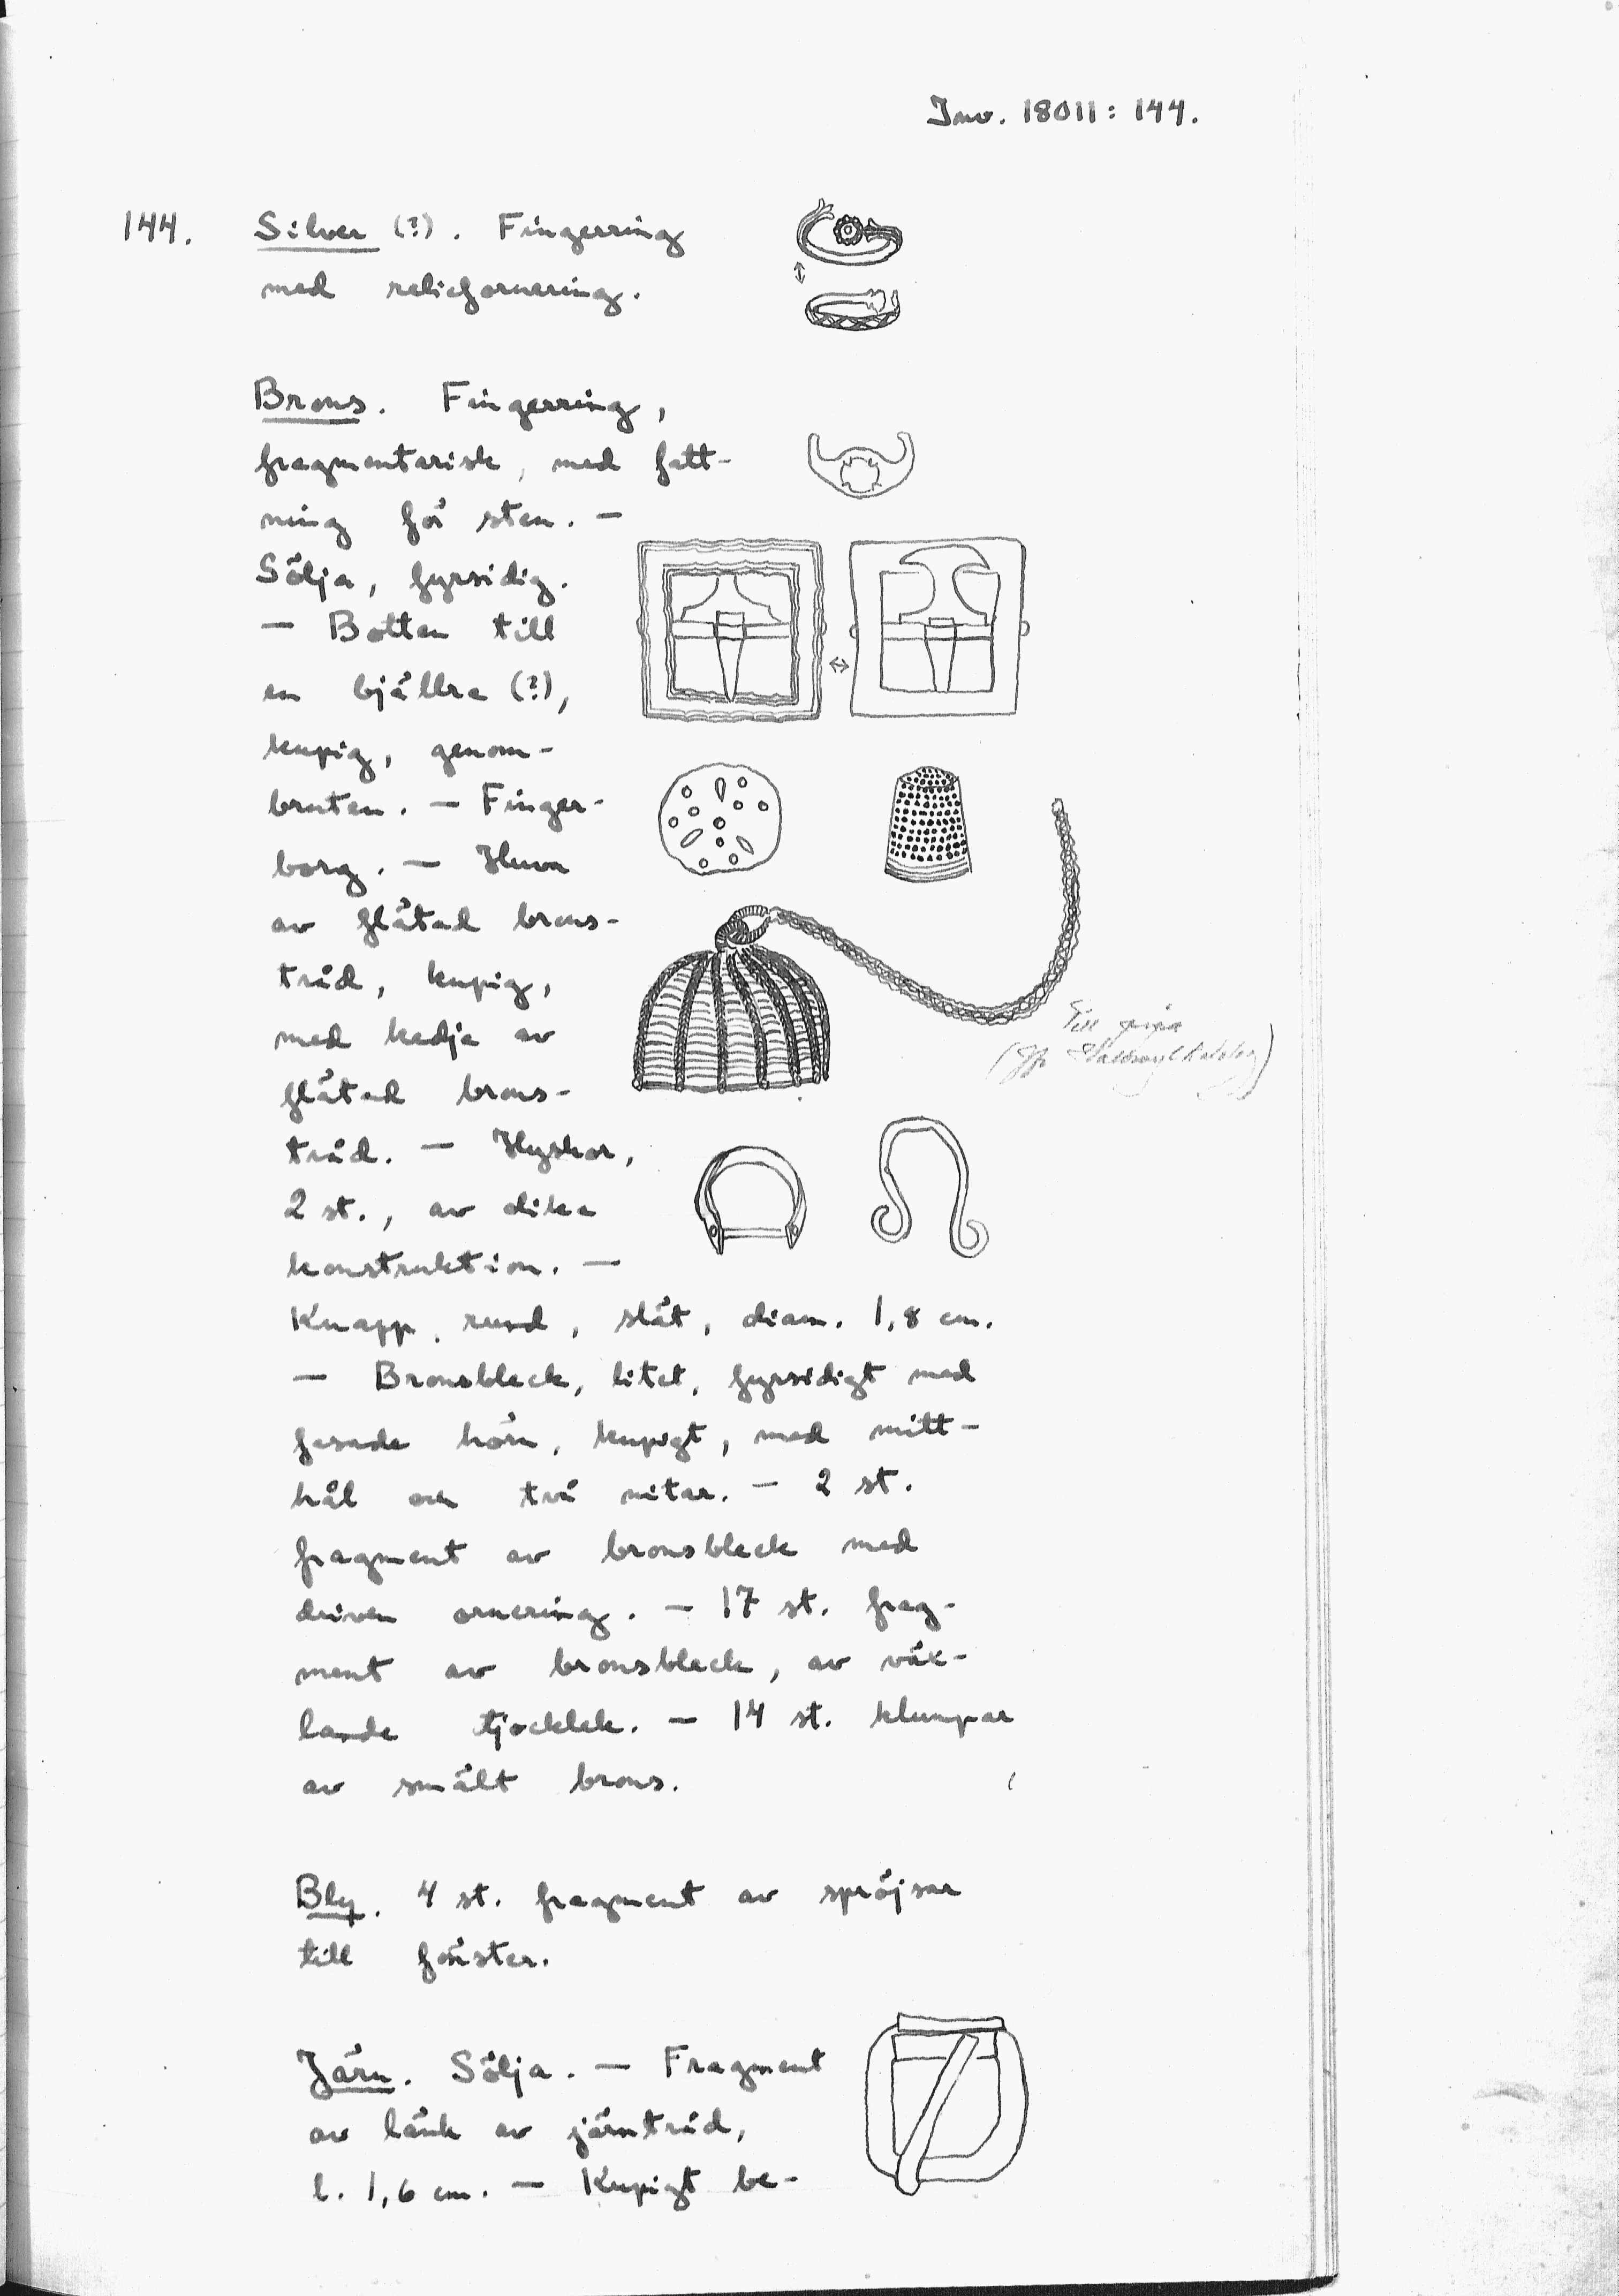 Inv. 18011: 144.
144. Silver (?). Fingerring
med reliefornering.
Brons. Fingerring,
fragmentarisk, med fatt-
ning för sten. —
Sölja, fyrsidig.
— Botten till
en bjällra (?),
kupig, genom-
bruten. — Finger-
borg. — Huva
av flätad brons-
tråd, kupig,
med kedja av
flätad brons-
tråd. — Hyskor,
2 st., av olika
konstruktion. —
Knapp, rund, slät, diam. 1,8 cm.
— Bronsbleck, litet, fyrsidigt med
fasade hörn, kupigt, med mitt-
hål och två nitar. — 2 st.
fragment av bronsbleck med
driven ornering. — 17 st. frag-
ment av bronsbleck, av väx-
lande tjocklek. — 14 st. klumpar
av smält brons.
Till pipa
Bly. 4 st. fragment av spröjsar
till fönster.
Järn. Sölja. — Fragment
av länk av järntråd,
l. 1,6 cm. — Kupigt be-